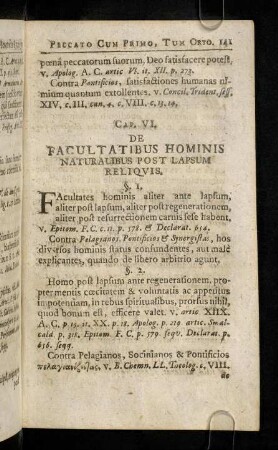 PECCATO CUM PRIMO, TUM ORTO. 141
pœnâ peccatorum suorum. Deo satisfacere potest,
v. Apolog. A. C. artic VI. II. XII. p. 273.
Contra Pontificios, satisfactiones humanas ni-
mium quantum extollentes. v. Concil. Trident. sess.
XIV, c. III, can. 4. c. VIII. c, 13. 14.
CAP. VI.
DE
FACULTATIBUS HOMINIS
NATURALIBUS POST LAPSUM
RELIQVIS.
§. 1.
FAcultates hominis aliter ante lapsum,
aliter post lapsum, aliter post regenerationem,
aliter post resurrectionem carnis sese habent,
v. Epitom. F. C. c. II. p. 578. & Declarat. 654.
Contra Pelagianos, Pontificios & Synergistas, hos
diversos hominis status confundentes, aut malè
explicantes, quando de libero arbitrio agunt.
§. 2.
Homo post lapsum ante regenerationem, pro-
pter mentis cœcitatem & voluntatis ac appetitus
impotentiam, in rebus spiritualibus, prorsus nihil,
quod bonum est, efficere valet. v. artic XIIX.
A. C. p. 15. II. XX. p. 18. Apolog. p. 219 artic. Smal-
cald p. 318. Epitom. F. C. p. 579. seqv. Declarat. p.
656. seqq.
Contra Pelagianos, Socinianos & Pontificios
v. B. Chemn. LL, Theolog. c. VIII.
de